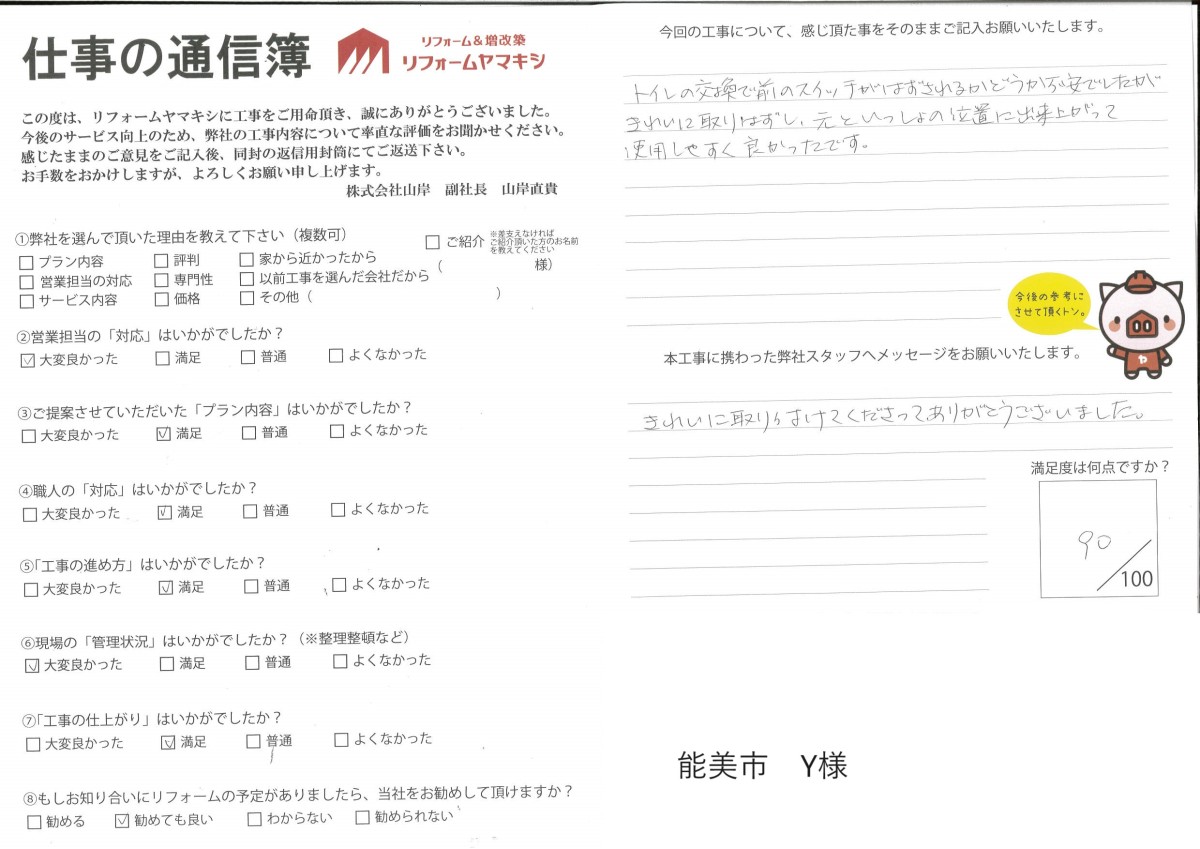 仕事の通信簿
リフォーム&増改築
リフォームヤマキシ
この度は、リフォームヤマキシに工事をご用命頂き、誠にありがとうございました。
今後のサービス向上のため、弊社の工事内容について率直な評価をお聞かせください。
感じたままのご意見をご記入後、同封の返信用封筒にてご返送下さい。
お手数をおかけしますが、よろしくお願い申し上げます。
株式会社山岸 副社長 山岸直貴
①弊社を選んで頂いた理由を教えて下さい（複数可）
□ ご紹介 ※差支えなければ
ご紹介頂いた方のお名前
を教えてください
（ 様）
□ プラン内容 □ 評判 □ 家から近かったから
□ 営業担当の対応 □ 専門性 □ 以前工事を選んだ会社だから
□ サービス内容 □ 価格 □ その他（ ）
②営業担当の「対応」はいかがでしたか？
☑ 大変良かった □ 満足 □ 普通 □ よくなかった
③ご提案させていただいた「プラン内容」はいかがでしたか？
□ 大変良かった ☑ 満足 □ 普通 □ よくなかった
④職人の「対応」はいかがでしたか？
□ 大変良かった ☑ 満足 □ 普通 □ よくなかった
⑤「工事の進め方」はいかがでしたか？
□ 大変良かった ☑ 満足 □ 普通 □ よくなかった
⑥現場の「管理状況」はいかがでしたか？（※整理整頓など）
☑ 大変良かった □ 満足 □ 普通 □ よくなかった
⑦「工事の仕上がり」はいかがでしたか？
□ 大変良かった ☑ 満足 □ 普通 □ よくなかった
⑧もしお知り合いにリフォームの予定がありましたら、当社をお勧めして頂けますか？
□ 勧める ☑ 勧めても良い □ わからない □ 勧められない
今回の工事について、感じ頂た事をそのままご記入お願いいたします。
トイレの交換で前のスイッチがはずされるかどうか不安でしたが
きれいに取りはずし、元といっしょの位置に出来上がって
使用しやすく良かったです。
今後の参考に
させて頂くトン。
ヤ
本工事に携わった弊社スタッフへメッセージをお願いいたします。
きれいに取り付けてくださってありがとうございました。
満足度は何点ですか？
90
/100
能美市 Y様